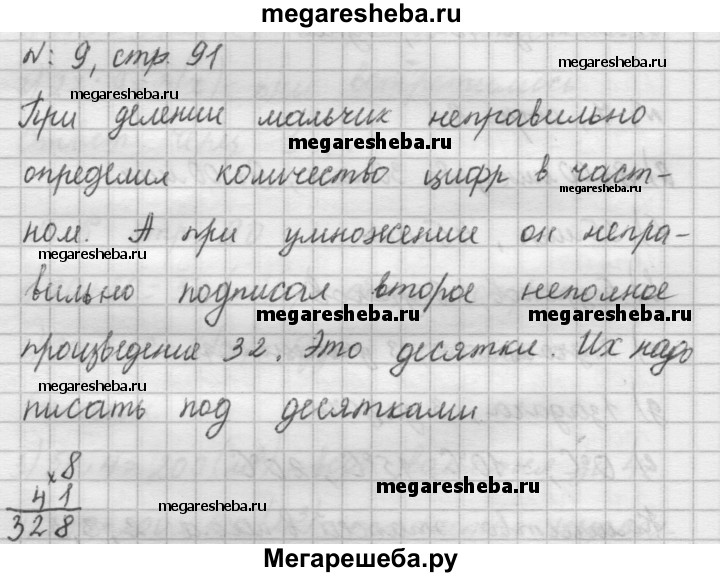 megaresheba.ru
№: 9, стр. 91
megaresheba.ru
При делении мальчик неправильно
megaresheba.ru
определил количество цифр в част-
megaresheba.ru
ном. А при умножении, он непра-
megaresheba.ru
вильно подписал второе неполное
megaresheba.ru megaresheba.ru
произведение 32. Это десятки. Их надо
megaresheba.ru
писать под десятками
× 8
41
328
megaresheba.ru megaresheba.ru
Мегарешеба.ру